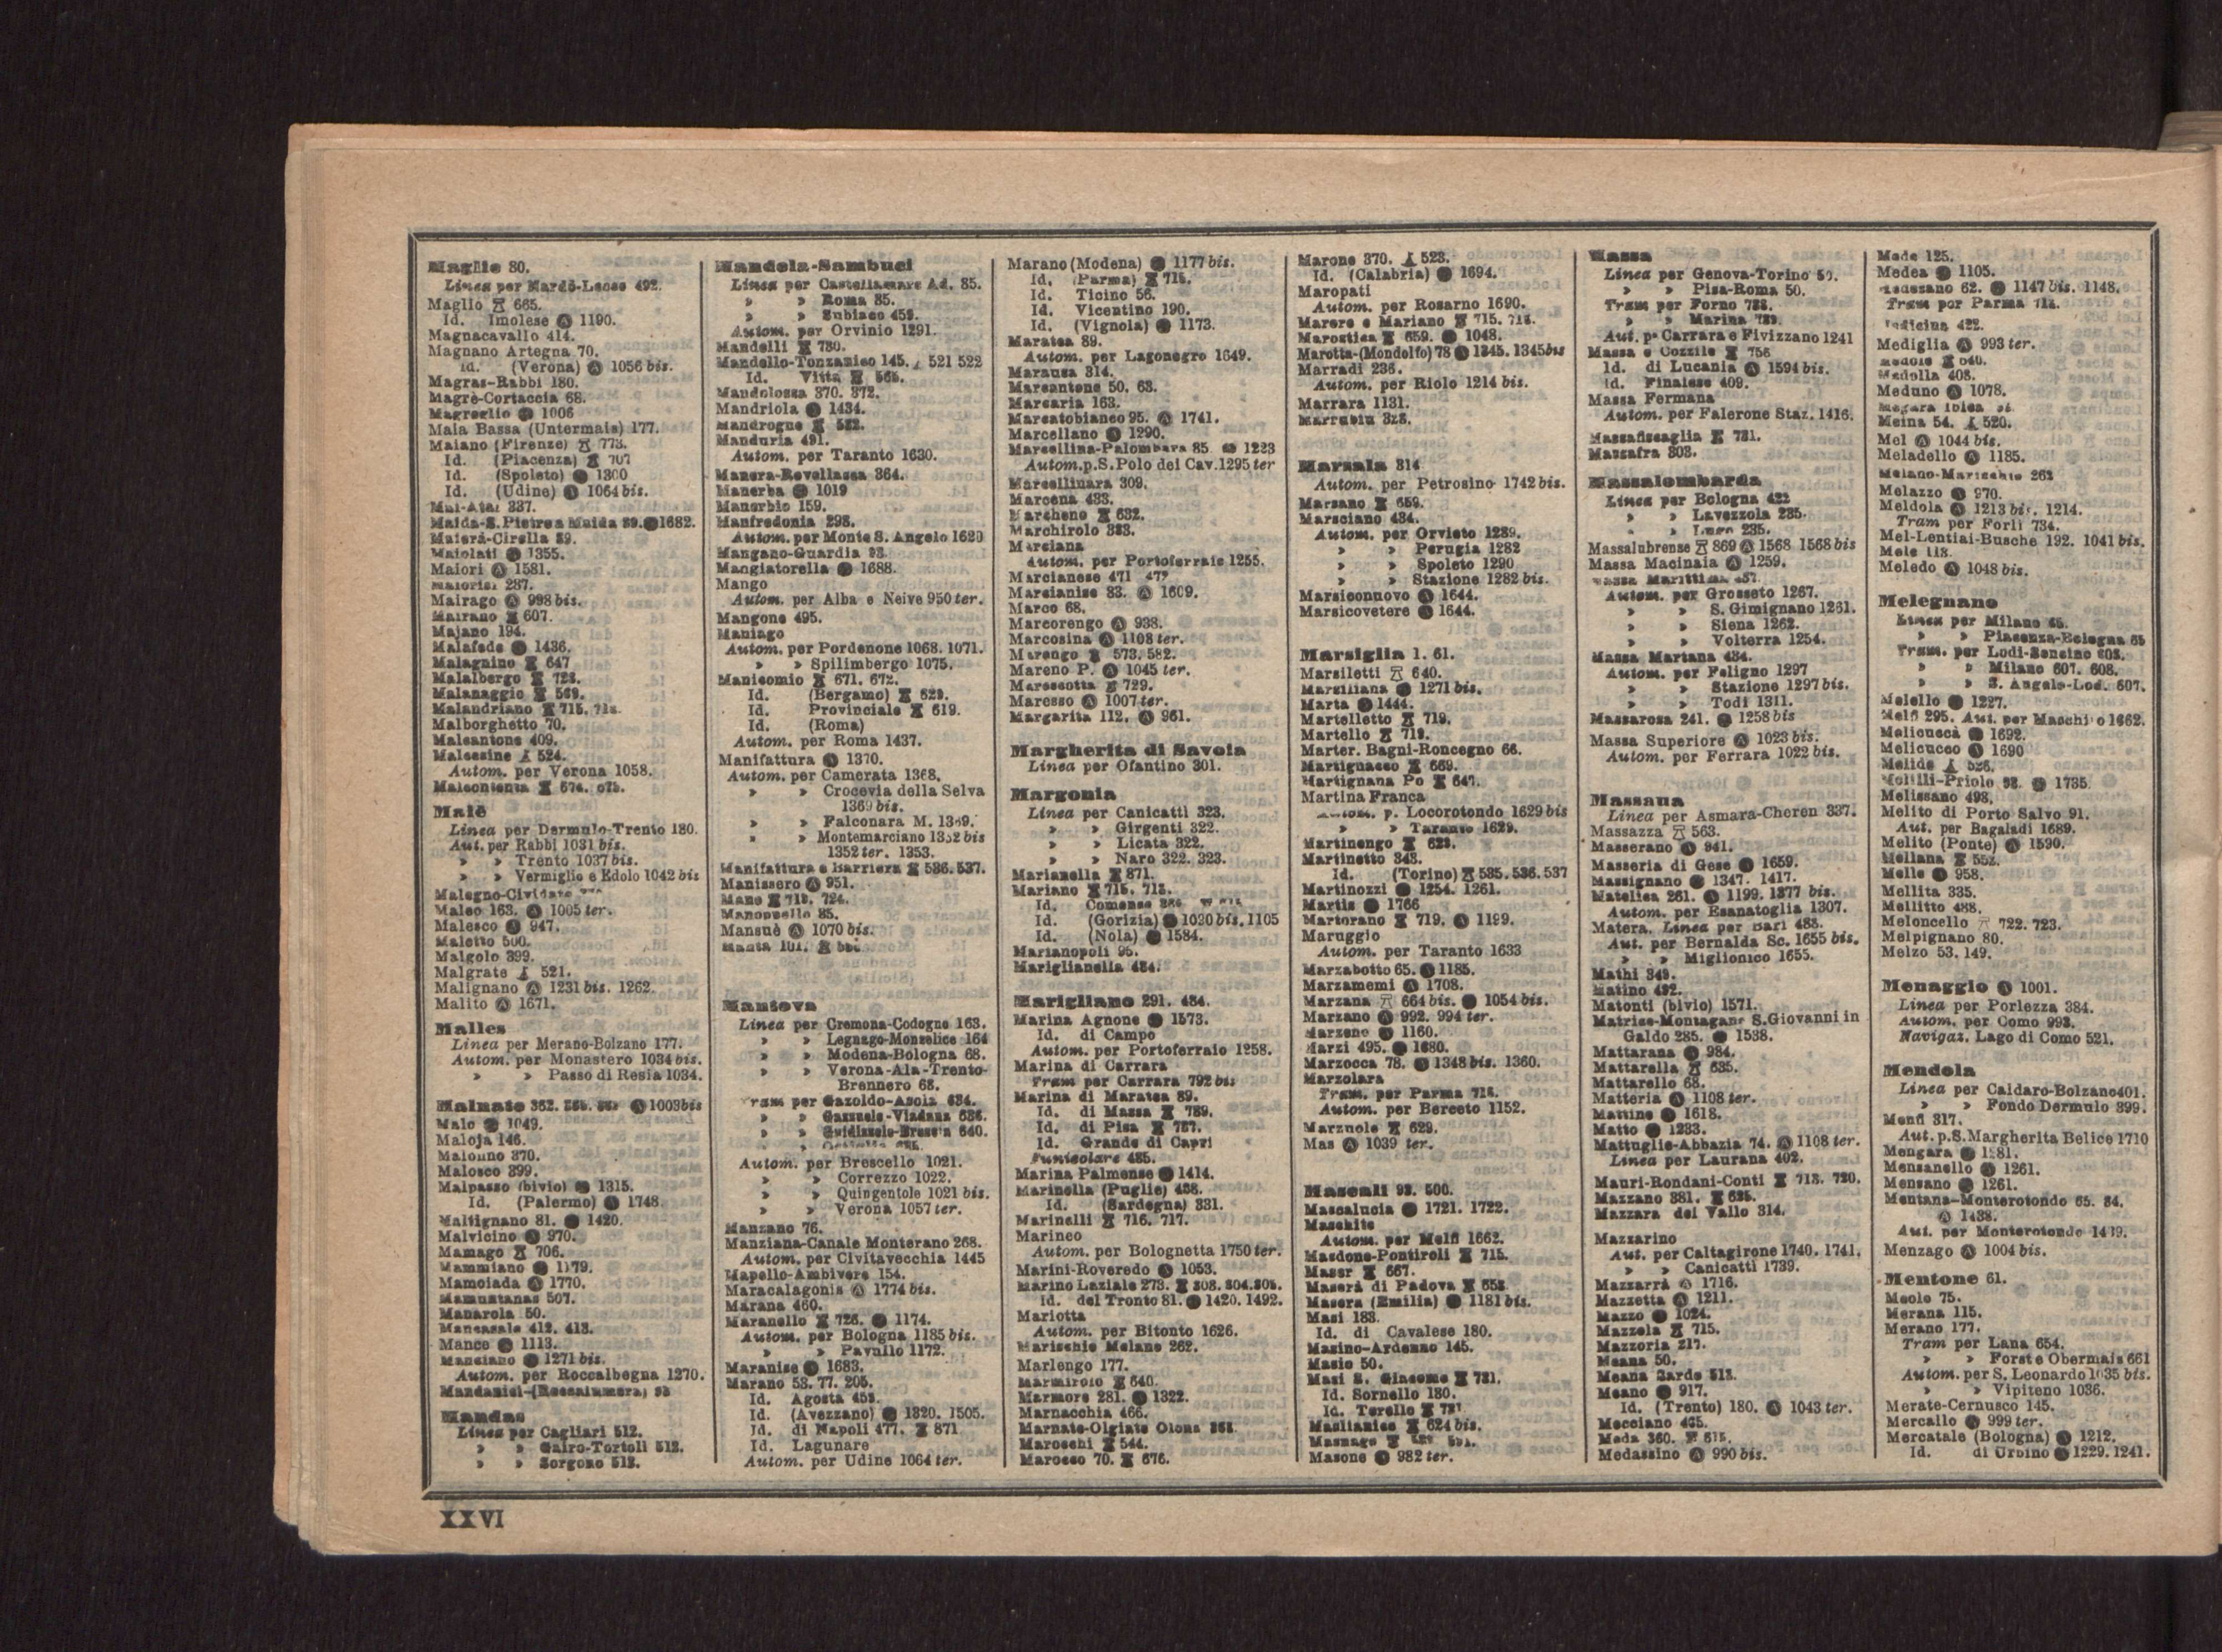 Maglie 80.
Linea per Nardò-Lecce 492.
Maglio 665.
Id. Imolese Ⓐ 1190.
Magnacavallo 414.
Magnano Artegna 70.
Id. (Verona) Ⓐ 1056 bis.
Magras-Rabbi 180.
Magrè-Cortaccia 68.
Magreglio Ⓐ 1006
Maia Bassa (Untermais) 177.
Maiano (Firenze) 773.
Id. (Piacenza) 707
Id. (Spoleto) Ⓐ 1300
Id. (Udine) Ⓐ 1064 bis.
Mai-Atal 337.
Maida-S. Pietro a Maida 89. Ⓐ 1682.
Maierà-Cirella 89.
Maiolati Ⓐ 1355.
Maiori Ⓐ 1581.
287.
Mairago Ⓐ 998 bis.
Mairano 607.
Majano 194.
Malafede Ⓐ 1436.
Malagnino 647
Malalbergo 728.
Malanaggio 569.
Malandriano 715.
Malborghetto 70.
Malcantone 409.
Malcesine 524.
Autom. per Verona 1058.
Malcontenta 674.
Malè
Linea per Dermulo-Trento 180.
Aut. per Rabbi 1031 bis.
» » Trento 1037 bis.
» » Vermiglio e Edolo 1042 bis
Malegno-Cividate
Maleo 163. Ⓐ 1005 ter.
Malesco Ⓐ 947.
Maletto 500.
Malgolo 399.
Malgrate 521.
Malignano Ⓐ 1231 bis. 1262.
Malito Ⓐ 1671.
Malles
Linea per Merano-Bolzano 177.
Autom. per Monastero 1034 bis.
» » Passo di Resia 1034.
Malnate 362. Ⓐ 1003 bis
Malo Ⓐ 1049.
Maloja 146.
Malonno 370.
Malosco 399.
Malpasso (bivio) Ⓐ 1315.
Id. (Palermo) Ⓐ 1748.
Maltignano 81. Ⓐ 1420.
Malvicino Ⓐ 970.
Mamago 706.
Mammiano Ⓐ 1179.
Mamoiada Ⓐ 1770.
Mamuntanas 507.
Manarola 50.
Mancasale 412. 413.
Mance Ⓐ 1113.
Manciano Ⓐ 1271 bis.
Autom. per Roccalbegna 1270.
Mandanici-(Roccalumera) 93
Mandas
Linea per Cagliari 512.
» » Gairo-Tortolì 512.
» » Sorgono 512.
Mandela-Sambuci
Linea per Castellamare Ad. 85.
» » Roma 85.
» » Subiaco 459.
Autom. per Orvinio 1291.
Mandelli 780.
Mandello-Tonzanico 145. 521 522
Id. Vitta 565.
Mandolossa 370. 372.
Mandriola Ⓐ 1434.
Mandrogne 582.
Manduria 491.
Autom. per Taranto 1630.
Manera-Rovellasca 364.
Manerba Ⓐ 1019
Manerbio 159.
Manfredonia 298.
Autom. per Monte S. Angelo 1620
Mangano-Guardia 93
Mangiatorella Ⓐ 1688.
Mango
Autom. per Alba e Neive 950 ter.
Mangone 495.
Maniago
Autom. per Pordenone 1068. 1071.
» » Spilimbergo 1075.
Manicomio 671. 672.
Id. (Bergamo) 629.
Id. Provinciale 619.
Id. (Roma)
Autom. per Roma 1437.
Manifattura Ⓐ 1370.
Autom. per Camerata 1368.
» » Crocevia della Selva
1369 bis.
» » Falconara M. 1369.
» » Montemarciano 1352 bis
1352 ter. 1353.
Manifattura e Barriera 536. 537.
Manissero Ⓐ 951.
Mano 719. 724.
Manoppello 85.
Mansuè Ⓐ 1070 bis.
Manta 101.
Mantova
Linea per Cremona-Codogno 163.
» » Legnago-Monselice 164
» » Modena-Bologna 68.
» » Verona-Ala-Trento-
Brennero 68.
Tram per Gazoldo-Asola 634.
» » Gazzuolo-Viadana 636.
» » Guidizzolo-Brescia 640.
Autom. per Brescello 1021.
» » Correzzo 1022.
» » Quingentole 1021 bis.
» » Verona 1057 ter.
Manzano 76.
Manziana-Canale Monterano 268.
Autom. per Civitavecchia 1445
Mapello-Ambivere 154.
Maracalagonis Ⓐ 1774 bis.
Marana 460.
Maranello 726. Ⓐ 1174.
Autom. per Bologna 1185 bis.
» » Pavullo 1172.
Maranise Ⓐ 1683.
Marano 58. 77. 205.
Id. Agosta 459.
Id. (Avezzano) Ⓐ 1320. 1505.
Id. di Napoli 477. 871
Id. Lagunare
Autom. per Udine 1064 ter.
Marano (Modena) Ⓐ 1177 bis.
Id. (Parma) 715.
Id. Ticino 56.
Id. Vicentino 190.
Id. (Vignola) Ⓐ 1173.
Maratea 89.
Autom. per Lagonegro 1649.
Marausa 314.
Marcantone 50. 63.
Marcaria 163.
Marcatobianco 95. Ⓐ 1741.
Marcellano Ⓐ 1290.
Marcellina-Palombara 85. Ⓐ 1223
Autom. p. S. Polo dei Cav. 1295 ter
Marcellinara 309.
Marcena 433.
Marcheno 632.
Marchirolo 383.
Marciana
Autom. per Portoferraio 1255.
Marcianese 471 472
Marcianise 83. Ⓐ 1609.
Marco 68.
Marcorengo Ⓐ 938.
Marcosina Ⓐ 1108 ter.
Marengo 573. 582.
Mareno P. Ⓐ 1045 ter.
Marescotta 729.
Maresso Ⓐ 1007 ter.
Margarita 112. Ⓐ 961.
Margherita di Savoia
Linea per Ofantino 301.
Margonia
Linea per Canicattì 323.
» » Girgenti 322.
» » Licata 322.
» » Naro 322. 323.
Marianella 871.
Mariano 715. 718.
Id. Comense
Id. (Gorizia) Ⓐ 1030 bis. 1105
Id. (Nola) Ⓐ 1584.
Marianopoli 95.
Mariglianella 484.
Marigliano 291. 484.
Marina Agnone Ⓐ 1573.
Id. di Campo
Autom. per Portoferraio 1258.
Marina di Carrara
Tram per Carrara 792 bis
Marina di Maratea 89.
Id. di Massa 789.
Id. di Pisa 787.
Id. Grande di Capri
Funicolare 485.
Marina Palmense Ⓐ 1414.
Marinella (Puglie) 488.
Id. (Sardegna) 331.
Marinelli 716. 717.
Marineo
Autom. per Bolognetta 1750 ter.
Marini-Roveredo Ⓐ 1053.
Marino Laziale 273. 803. 804.
Id. del Tronto 81. Ⓐ 1420. 1492.
Mariotta
Autom. per Bitonto 1626.
Marischio Melano 262.
Marlengo 177.
Marmirolo 640.
Marmore 281. Ⓐ 1322.
Marnacchia 466.
Marnate-Olgiate Olona
Marocchi 544.
Marocco 70. 676.
Marone 370. 523.
Id. (Calabria) Ⓐ 1694.
Maropati
Autom. per Rosarno 1690.
Marore e Mariano 715. 718.
Marostica 659. Ⓐ 1048.
Marotta-(Mondolfo) 78 Ⓐ 1345. 1345 bis
Marradi 236.
Autom. per Riolo 1214 bis.
Marrara 1131.
Marrubiu 328.
Marsala 314
Autom. per Petrosino 1742 bis.
Marsano 659.
Marsciano 434.
Autom. per Orvieto 1289.
» » Perugia 1282
» » Spoleto 1290
» » Stazione 1282 bis.
Marsiconuovo Ⓐ 1644.
Marsicovetere Ⓐ 1644.
Marsiglia 1. 61.
Marsiletti 640.
Marsiliana Ⓐ 1271 bis.
Marta Ⓐ 1444.
Martelletto 719.
Martello 719.
Marter. Bagni-Roncegno 66.
Martignacco 669.
Martignana Po 647.
Martina Franca
Autom. p. Locorotondo 1629 bis
» » Taranto 1629.
Martinengo 623.
Martinetto 343.
Id. (Torino) 535. 536. 537
Martinozzi Ⓐ 1254. 1261.
Martis Ⓐ 1766
Martorano 719. Ⓐ 1199.
Maruggio
Autom. per Taranto 1633
Marzabotto 65. Ⓐ 1185.
Marzamemi Ⓐ 1708.
Marzana 664 bis. Ⓐ 1054 bis.
Marzano Ⓐ 992. 994 ter.
Marzeno Ⓐ 1160.
Marzi 495. Ⓐ 1680.
Marzocca 78. Ⓐ 1348 bis. 1360.
Marzolara
Tram. per Parma 715.
Autom. per Berceto 1152.
Marzuole 629.
Mas Ⓐ 1039 ter.
Mascali 93. 500.
Mascalucia Ⓐ 1721. 1722.
Maschito
Autom. per Melfi 1662.
Masdone-Pontiroli 715.
Maser 667.
Maserà di Padova 653.
Masera (Emilia) Ⓐ 1181 bis.
Masi 183.
Id. di Cavalese 180.
Masino-Ardenno 145.
Masio 50.
Masi S. Giacomo 731.
Id. Sornello 180.
Id. Torello 731
Maslianico 624 bis.
Masnago
Masone Ⓐ 982 ter.
Massa
Linea per Genova-Torino 50.
» » Pisa-Roma 50.
Tram per Forno 788.
» » Marina 789.
Aut. pª Carrara e Fivizzano 1241
Massa e Cozzile 756
Id. di Lucania Ⓐ 1594 bis.
Id. Finalese 409.
Massa Fermana
Autom. per Falerone Staz. 1416.
Massafiscaglia 731.
Massafra 303.
Massalombarda
Linea per Bologna 422
» » Lavezzola 235.
» » Lugo 235.
Massalubrense 869 Ⓐ 1568 1568 bis
Massa Macinaia Ⓐ 1259.
Massa Marittima 437.
Autom. per Grosseto 1267.
» » S. Gimignano 1261.
» » Siena 1262.
» » Volterra 1254.
Massa Martana 434.
Autom. per Foligno 1297
» » Stazione 1297 bis.
» » Todi 1311.
Massarosa 241. Ⓐ 1258 bis
Massa Superiore Ⓐ 1023 bis.
Autom. per Ferrara 1022 bis.
Massaua
Linea per Asmara-Cheren 337.
Massazza 563.
Masserano Ⓐ 941.
Masseria di Gese Ⓐ 1659.
Massignano Ⓐ 1347. 1417.
Matelica 261. Ⓐ 1199. 1377 bis.
Autom. per Esanatoglia 1307.
Matera. Linea per Bari 488.
Aut. per Bernalda Sc. 1655 bis.
» » Miglionico 1655.
Mathi 349.
Matino 492.
Matonti (bivio) 1571.
Matrice-Montagano S. Giovanni in
Galdo 285. Ⓐ 1538.
Mattarana Ⓐ 984.
Mattarella 635.
Mattarello 68.
Matteria Ⓐ 1108 ter.
Mattine Ⓐ 1618.
Matto Ⓐ 1233.
Mattuglie-Abbazia 74. Ⓐ 1108 ter.
Linea per Laurana 402.
Mauri-Rondani-Conti 718. 720.
Mazzano 381. 625.
Mazzara del Vallo 314.
Mazzarino
Aut. per Caltagirone 1740. 1741.
» » Canicattì 1739.
Mazzarrà Ⓐ 1716.
Mazzetta Ⓐ 1211.
Mazzo Ⓐ 1024.
Mazzola 715.
Mazzoria 217.
Meana 50.
Meana Sardo 512.
Meano Ⓐ 917.
Id. (Trento) 180. Ⓐ 1043 ter.
Mecciano 465.
Meda 360. 615.
Medassino Ⓐ 990 bis.
Mede 125.
Medea Ⓐ 1105.
Medesano 62. Ⓐ 1147 bis. 1148.
Tram per Parma
Medicina 422.
Mediglia Ⓐ 993 ter.
Medole 640.
Medolla 408.
Meduno Ⓐ 1078.
Megara Iblea
Meina 54. 520.
Mel Ⓐ 1044 bis.
Meladello Ⓐ 1185.
Melano-Marischio 262
Melazzo Ⓐ 970.
Meldola Ⓐ 1213 bis. 1214.
Tram per Forlì 734.
Mel-Lentiai-Busche 192. 1041 bis.
Mele 118.
Meledo Ⓐ 1048 bis.
Melegnano
Linea per Milano 65.
» » Piacenza-Bologna 65
Tram. per Lodi-Soncino 608.
» » Milano 607. 608.
» » S. Angelo-Lod. 607.
Melello Ⓐ 1227.
Melfi 295. Aut. per Maschito 1662.
Melicuccà Ⓐ 1692.
Melicucco Ⓐ 1690
Melide 526.
Melilli-Priolo 93. Ⓐ 1735.
Melissano 498.
Melito di Porto Salvo 91.
Aut. per Bagaladi 1689.
Melito (Ponte) Ⓐ 1530.
Mellana 552.
Melle Ⓐ 958.
Mellita 335.
Mellitto 488.
Meloncello 722. 723.
Melpignano 80.
Melzo 53. 149.
Menaggio Ⓐ 1001.
Linea per Porlezza 384.
Autom. per Como 993.
Navigaz. Lago di Como 521.
Mendola
Linea per Caldaro-Bolzano 401.
» » Fondo Dermulo 399.
Menfi 317.
Aut. p. S. Margherita Belice 1710
Mengara Ⓐ 1281.
Mensanello Ⓐ 1261.
Mensano Ⓐ 1261.
Mentana-Monterotondo 65. 84.
Ⓐ 1438.
Aut. per Monterotondo 1439.
Menzago Ⓐ 1004 bis.
Mentone 61.
Meolo 75.
Merana 115.
Merano 177.
Tram per Lana 654.
» » Forst e Obermais 661
Autom. per S. Leonardo 1035 bis.
» » Vipiteno 1036.
Merate-Cernusco 145.
Mercallo Ⓐ 999 ter.
Mercatale (Bologna) Ⓐ 1212.
Id. di Urbino Ⓐ 1229. 1241.
XXVI